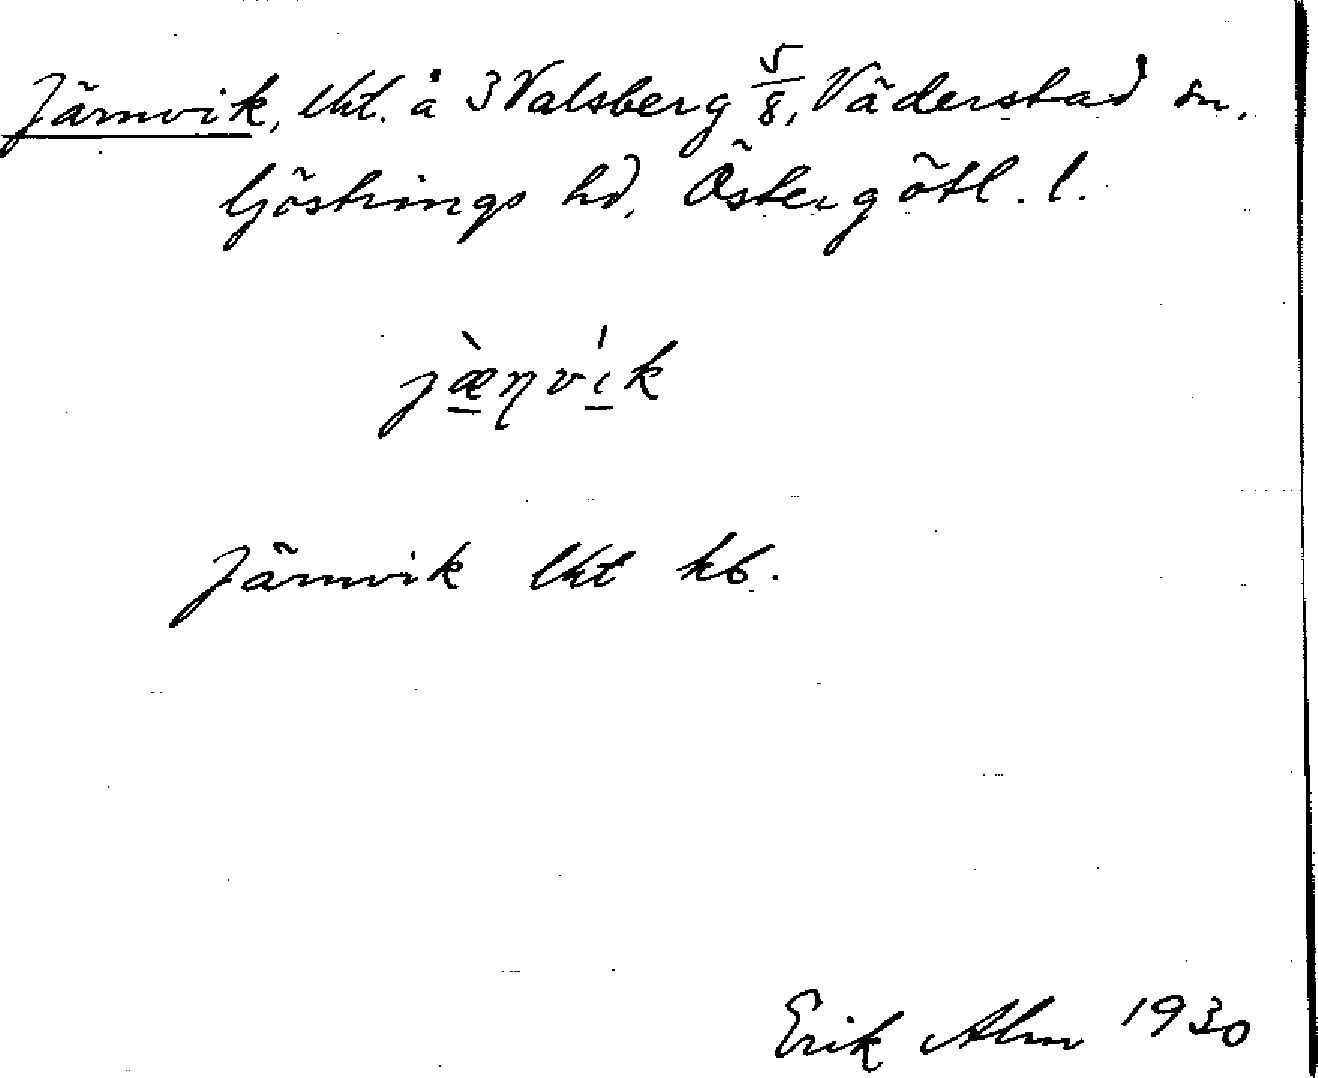 Järnvik, lht. å 3 Valsberg 5/8, Väderstad sn,
Göstrings hd, Östergötl. l.
jæ̀ṇvík
Järnvik lht kb.
Erik Alm 1930